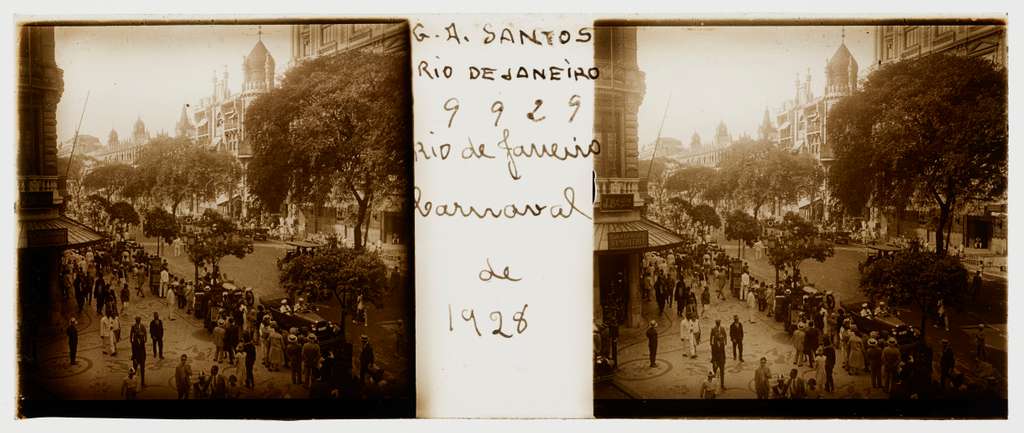 G. A. SANTOS
RIO DE JANEIRO
9929
Rio de Janeiro
Carnaval
de
1928